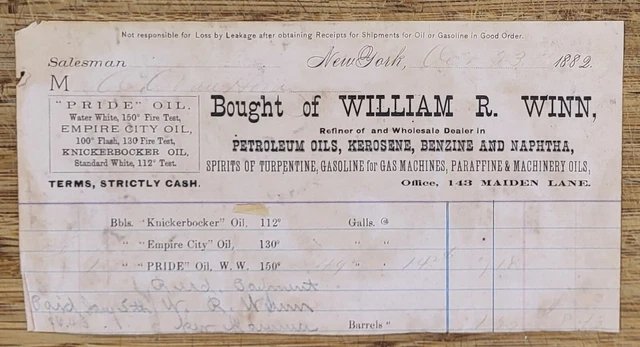 Not responsible for Loss by Leakage after obtaining Receipts for Shipments for Oil or Gasoline in Good Order.
Salesman New York, Oct 23 1882.
M
"PRIDE" OIL,
Water White, 150° Fire Test,
EMPIRE CITY OIL,
100° Flash, 130 Fire Test,
KNICKERBOCKER OIL,
Standard White, 112° Test.
TERMS, STRICTLY CASH.
Bought of WILLIAM R. WINN,
Refiner of and Wholesale Dealer in
PETROLEUM OILS, KEROSENE, BENZINE AND NAPHTHA,
SPIRITS OF TURPENTINE, GASOLINE for GAS MACHINES, PARAFFINE & MACHINERY OILS,
Office, 143 MAIDEN LANE.
Bbls. "Knickerbocker" Oil, 112° Galls. @
" "Empire City" Oil, 130° " "
" "PRIDE" Oil, W. W. 150° " "
Payment
Paid W. R. Winn
Barrels "